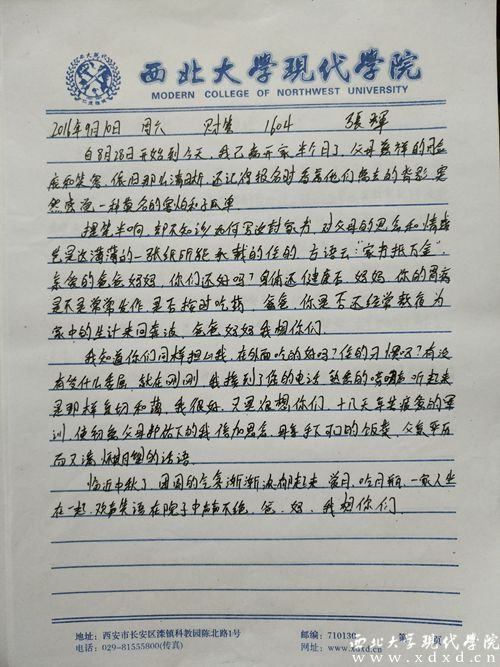 西北大學現代學院
MODERN COLLEGE OF NORTHWEST UNIVERSITY
2016年9月10日 周六 财管 1604 張輝
自8月28日开始到今天,我已离开家半个月了,父母慈祥的
和笑容,依旧那么清晰,还记得报名时看着他们离去的背影,突
然感觉一种莫名的害怕和孤单
提笔半响,却不知该如何写这封家书,对父母的思念和情感
岂是这薄薄的一张纸所能承载的住的.古语云:"家书抵万金",
亲爱的爸爸妈妈,你们还好吗?身体还健康否,妈妈,你的胃病
是不是常常发作,是否按时吃药,爸爸,你是否还经常熬夜为
家中的生计来回奔波,爸爸妈妈我想你们.
我知道你们同样担心我,在外面吃的好吗?住的习惯吗?有没
有缺什么东西,就在刚刚,我接到了您的电话,熟悉的嗓音听起来
是那样亲切和蔼,我很好,又更很想你们,十几天辛苦疲惫的军
训,使初离父母 的我倍加思念,母亲手下可口的饭菜,父亲平厉
而又满怀期望的话语.
临近中秋了,团圆的气氛渐渐浓郁起来,赏月,吟月饼,一家人坐
在一起,欢声笑语在院子中声声不绝,爸,妈,我想你们.
地址:西安市长安区滦镇科教园陈北路1号
邮编:710130
第 页
电话:029-81555800(传真)
网
西北大学现代学院
www.xdxd.cn